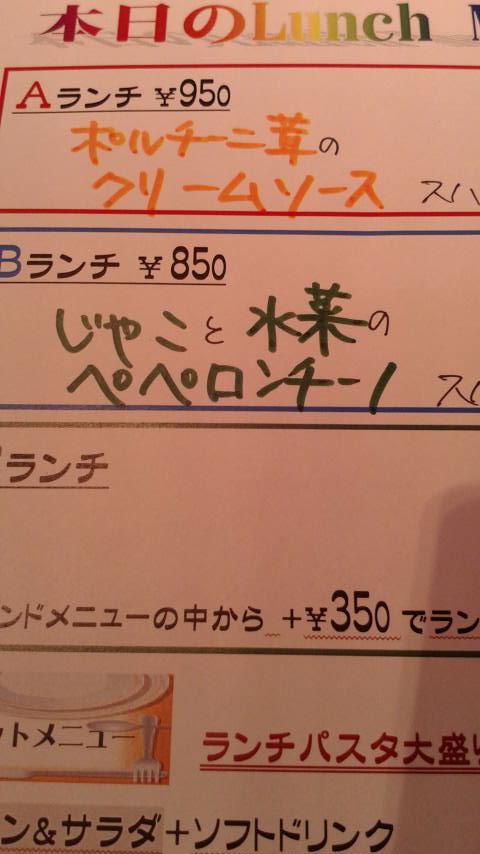 本日のLunch
Aランチ ¥950
ポルチーニ茸の
クリームソース スパ
Bランチ ¥850
じゃこと水菜の
ペペロンチーノ スパ
ランチ
ンドメニューの中から +¥350 でラン
ットメニュー
ランチパスタ大盛り
ン&サラダ+ソフトドリンク